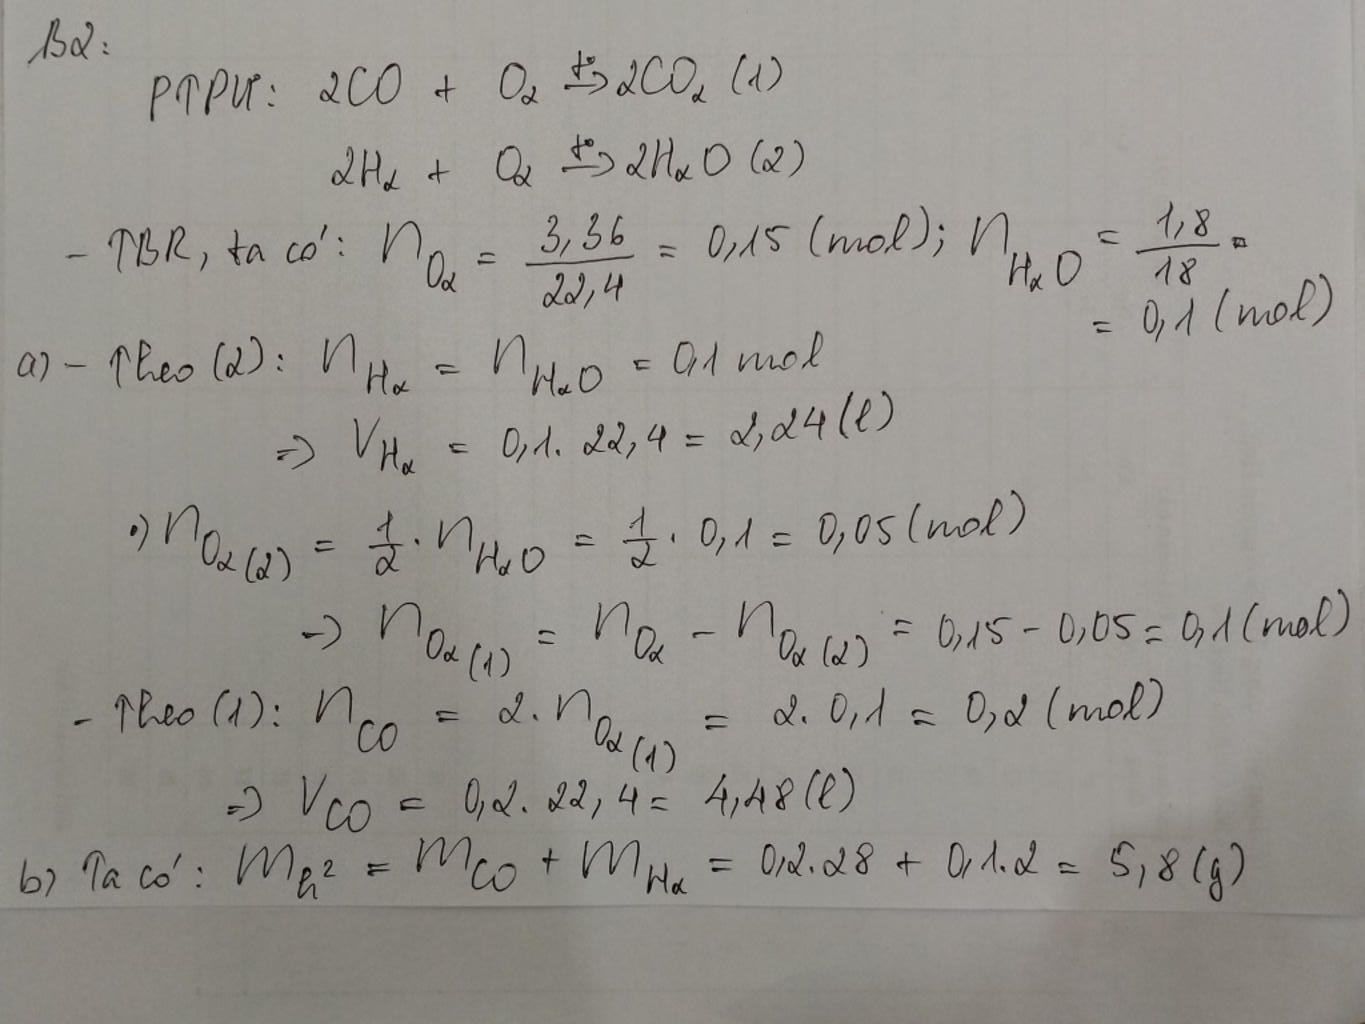 B2:
PTPƯ: 2CO + O₂ →(t°) 2CO₂ (1)
2H₂ + O₂ →(t°) 2H₂O (2)
- TBR, ta có: n_O₂ = 3,36/22,4 = 0,15 (mol); n_H₂O = 1,8/18 =
= 0,1 (mol)
a) - Theo (2): n_H₂ = n_H₂O = 0,1 mol
=> V_H₂ = 0,1. 22,4 = 2,24 (l)
•) n_O₂ (2) = 1/2 . n_H₂O = 1/2 . 0,1 = 0,05 (mol)
-> n_O₂ (1) = n_O₂ - n_O₂ (2) = 0,15 - 0,05 = 0,1 (mol)
- Theo (1): n_CO = 2. n_O₂ (1) = 2. 0,1 = 0,2 (mol)
=> V_CO = 0,2. 22,4 = 4,48 (l)
b) Ta có: m_h² = m_CO + m_H₂ = 0,2.28 + 0,1.2 = 5,8 (g)